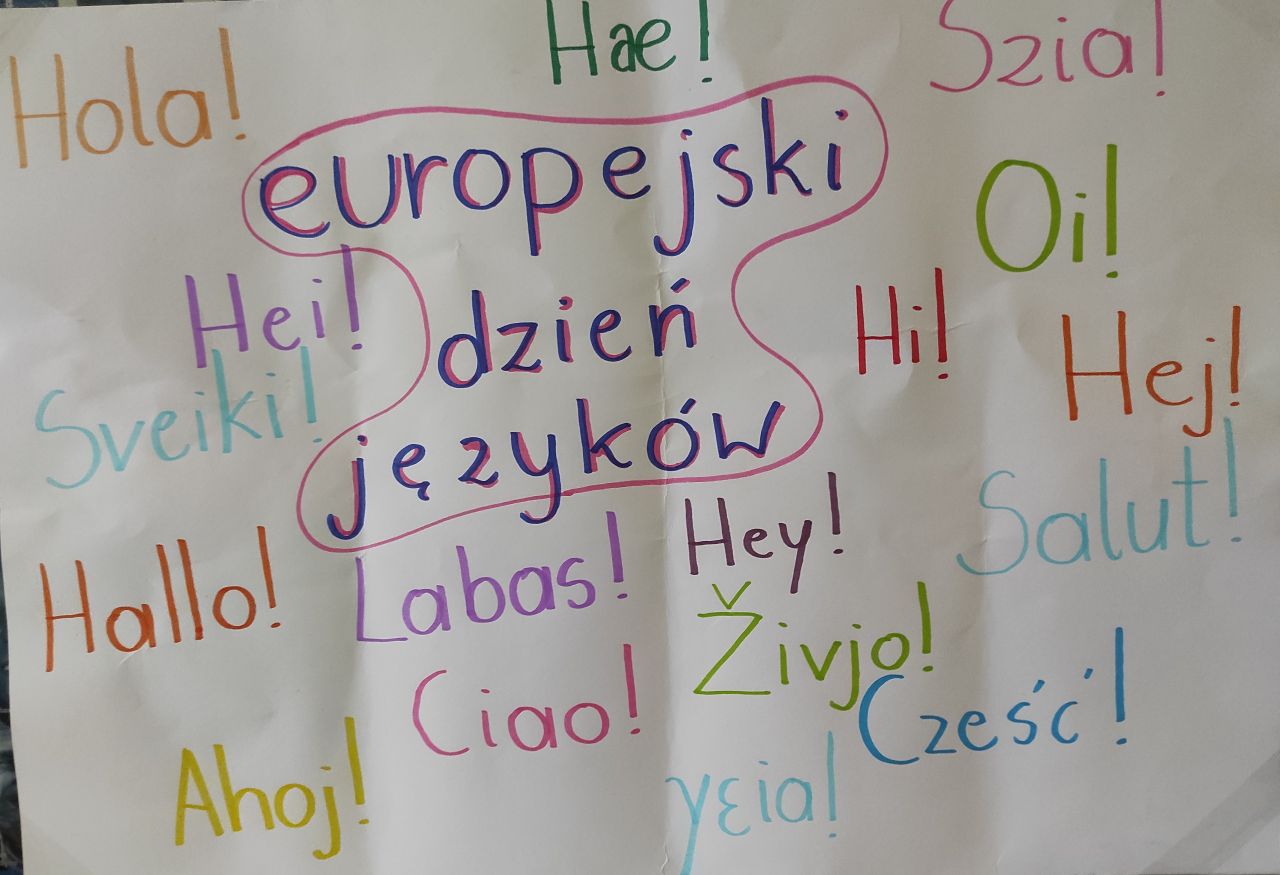 Hae!
Szia!
Hola!
europejski
Oi!
Hei!
dzień
Hi!
Hej!
Sveiki!
języków
Salut!
Hey!
Hallo!
Labas!
Živjo!
Ciao!
Cześć!
Ahoj!
γεια!